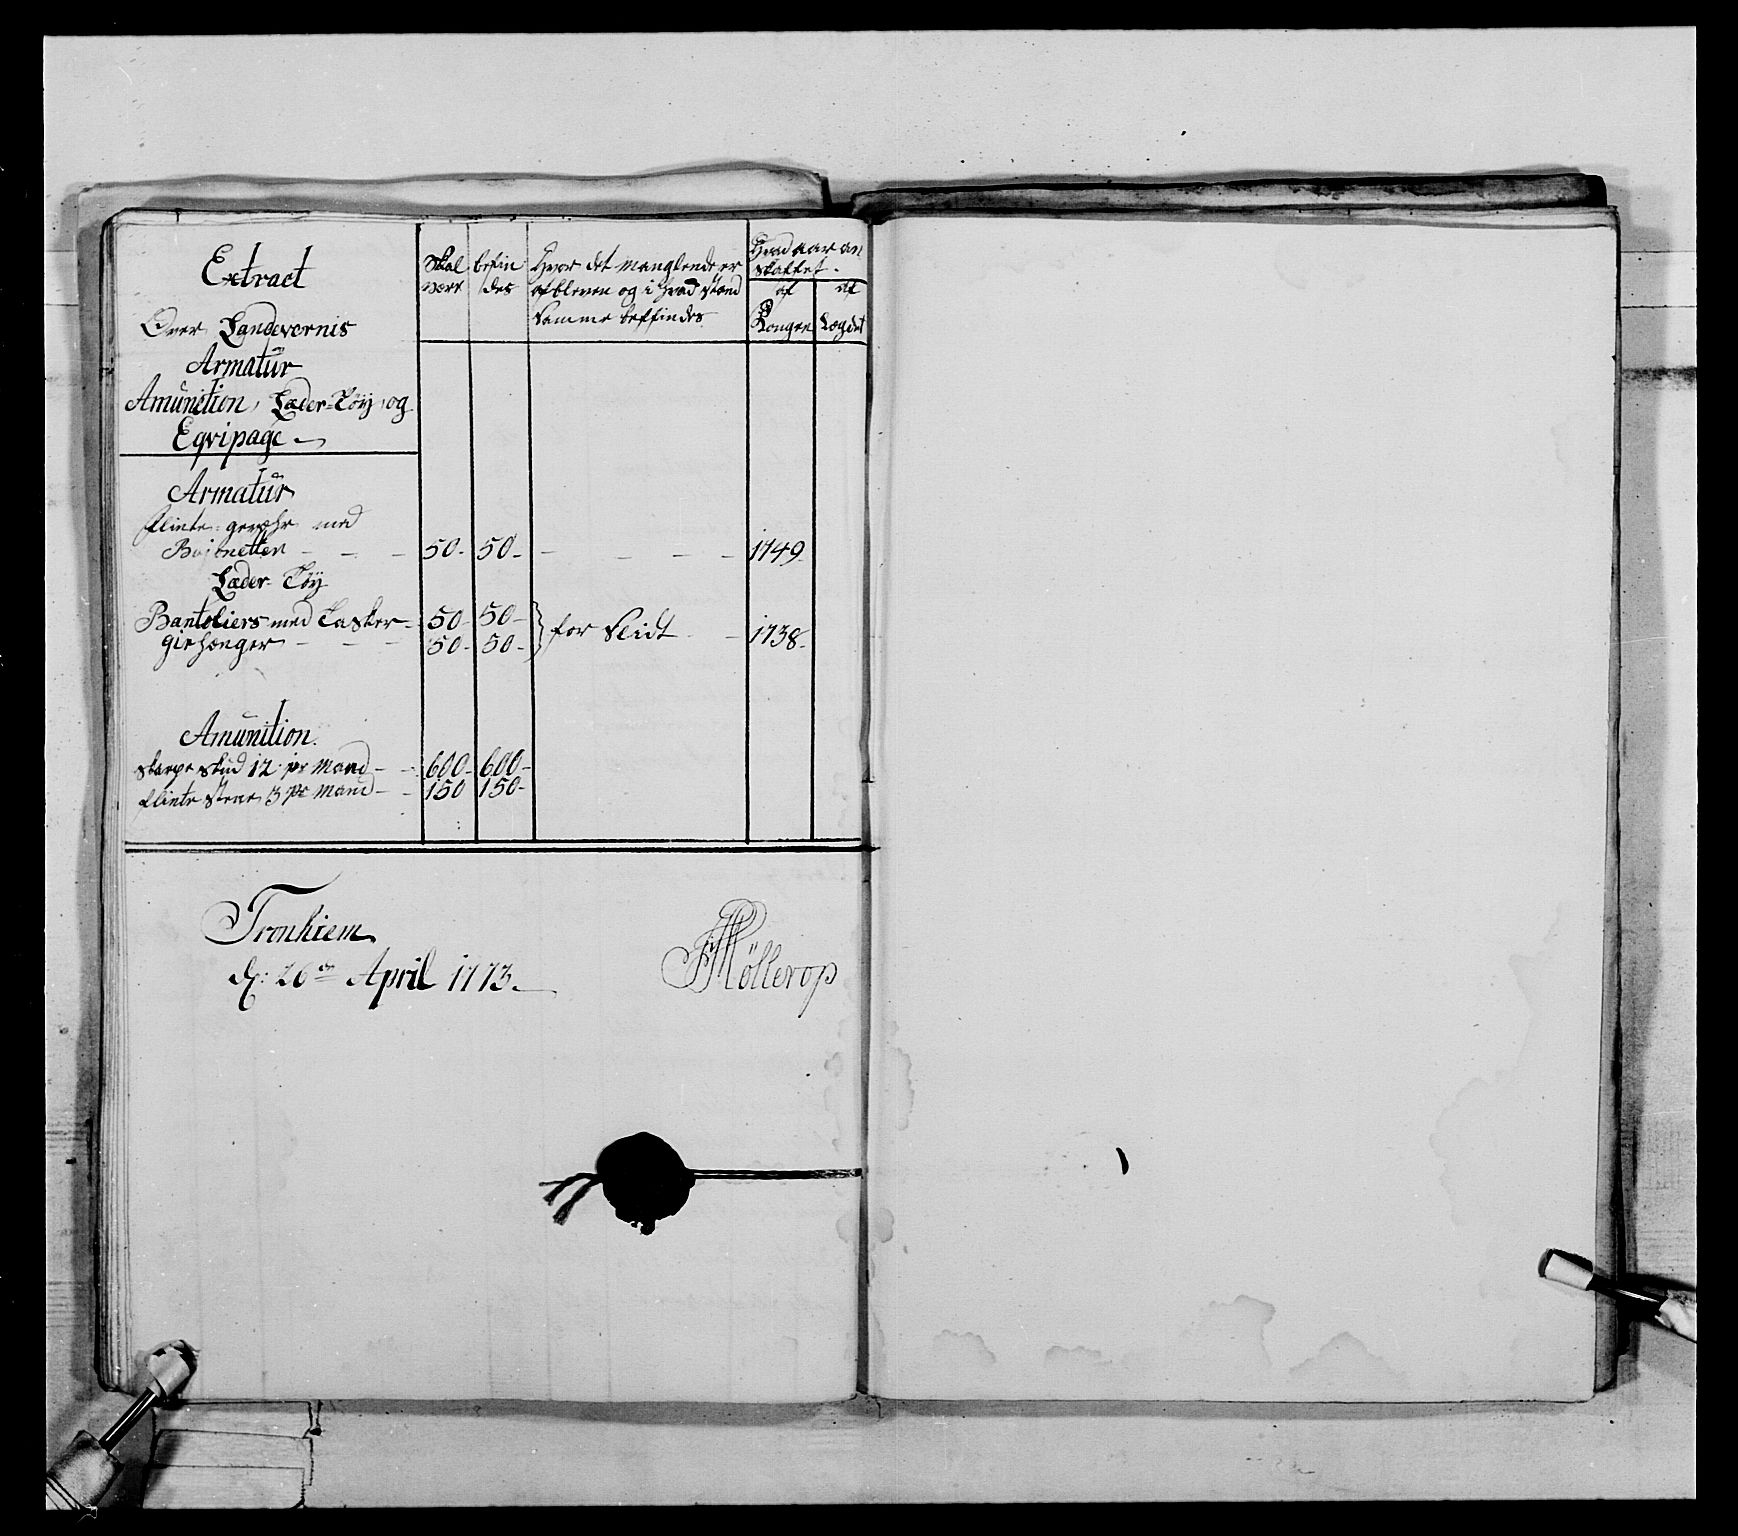 Extract
Over Landevernis
Armatur
Amunition, Læder-Töy, og
Eqvipage
Skal være
befindes
Hvor det manglende er
afbleven og i hvad stand
Samme beffindes
Hvad aar an
skaffet.
af Kongen
af Lægdet
Armatur
flinte-gevæhr med
Bajonetter - - - 50- 50- - - - - 1749-
Læder-Töy
Bantoliers med Tasker- 50- 50- } for Slidt - - 1738-
Gehænger - - - 50- 50-
Amunition.
skarpe skud 12 pr Mand - - 600- 600-
flinte stene 3 pr Mand - - 150 150-
Tronhiem
d: 26de April 1773.
Möllerop